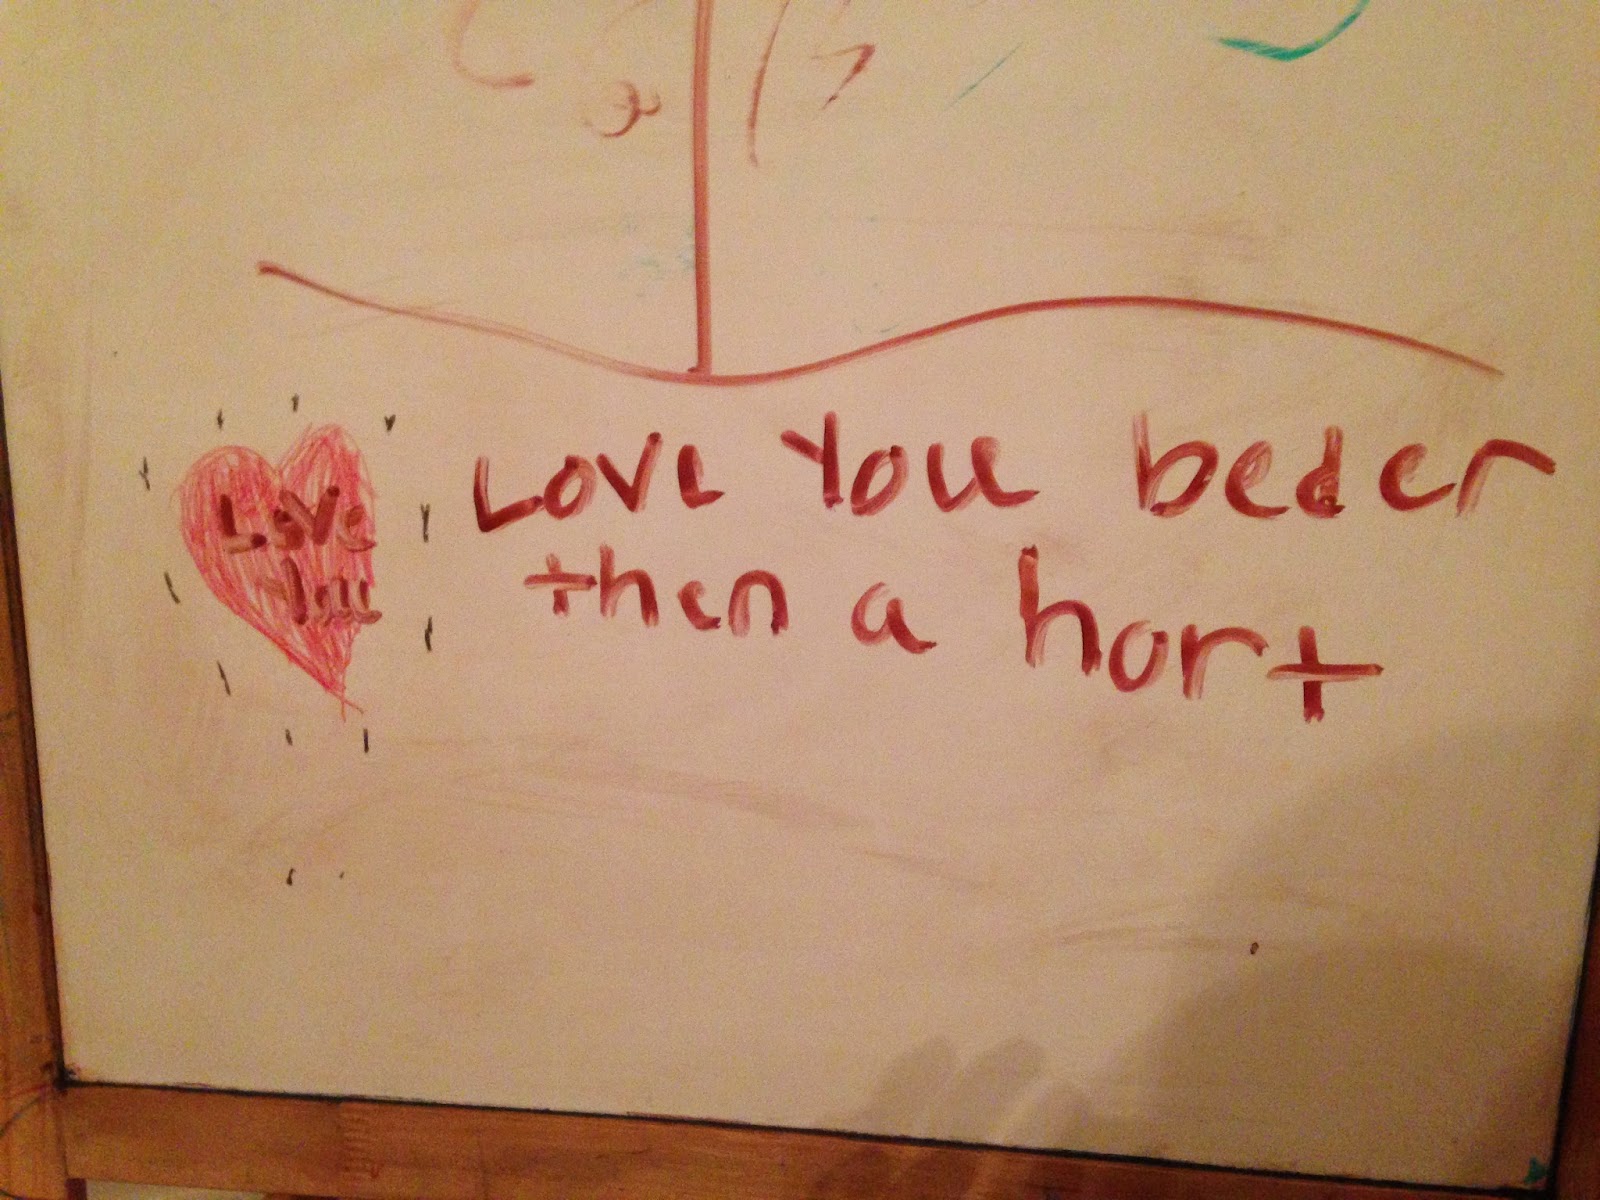 Love
You
Love You beder
then a hort